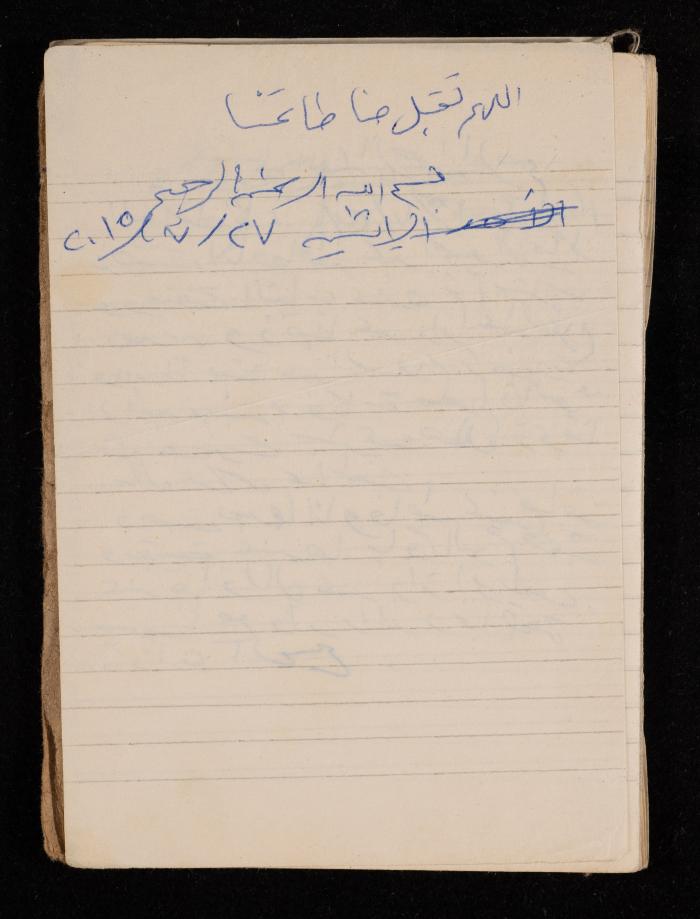 اللهم تقبل منا طاعتنا
بسم الله الرحمن الرحيم
الاثنين ٢٧/٧/٢٠١٥